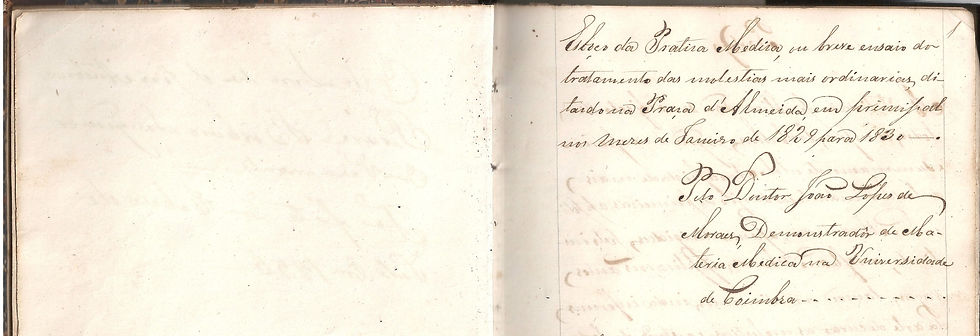 1
Esboço da Pratica Medica, ou breve ensaio do
tratamento das molestias mais ordinarias, di-
tado na Praça d'Almeida, em principal
nos mezes de Janeiro de 1829 para 1830 —.
Pelo Doutor João Lopes de
Moraes, Demonstrador de Ma-
teria Medica na Universidade
de Coimbra - - - - - - - - - -